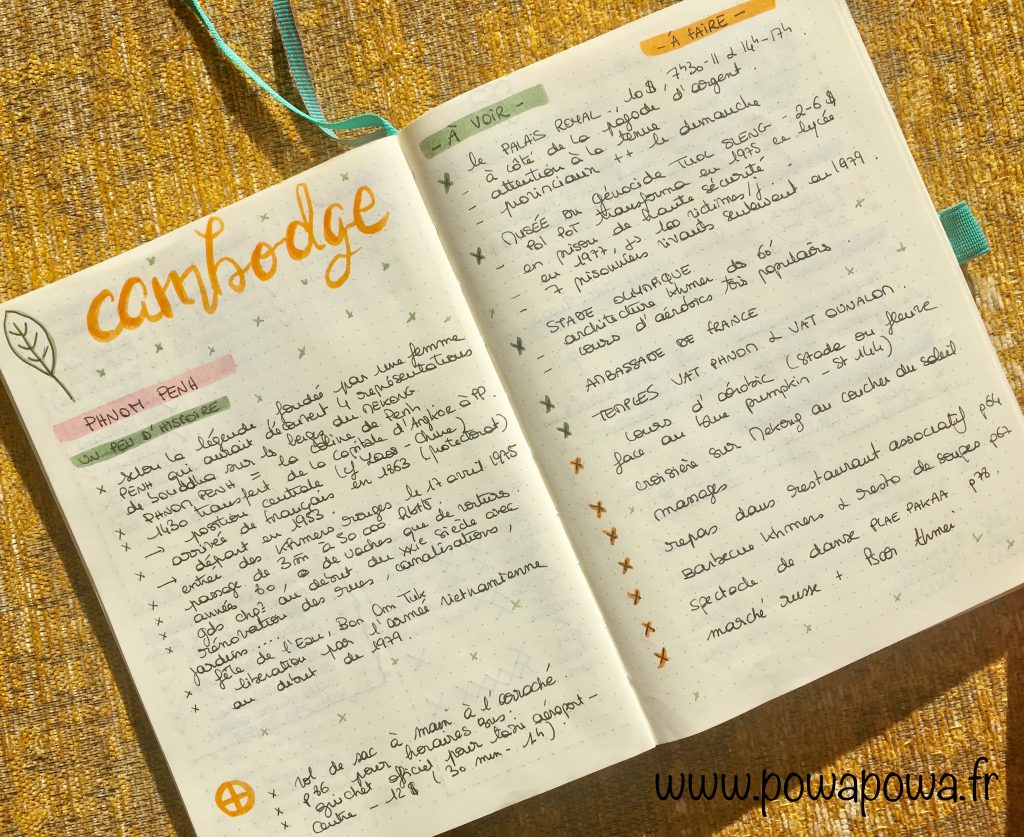 cambodge
PHNOM PENH
UN PEU D'HISTOIRE
x selon la légende, fondée par une femme
PENH qui aurait découvert 4 représentations
de bouddha sur les berges du MEKONG
x PHNOM PENH = la colline de Penh
x 1430 transfert de la capitale d'Angkor à PP.
→ position centrale (cf Laos - Chine)
x arrivée de français en 1863 (protectorat)
→ départ en 1953
x entrée des Khmers rouges le 17 avril 1975
passage de 3m à 50 000 habts
x années 80, de vaches que de voitures
gds chgts au début du XXIe siècle avec
rénovation des rues, canalisations,
jardins...
x fête de l'Eau, Bon Om Tuk
x libération par l'armée vietnamienne
au début de 1979.
x vol de sac à main à l'arraché.
x p 86 pour horaires bus
x guichet officiel pour taxi aéroport -
centre - 12$ (30 min - 1h)
- À FAIRE -
- À VOIR -
le PALAIS ROYAL, 10$, 7h30-11 & 14h-17h.
- à côté de la pagode d'argent.
- attention à la tenue
- provinciaux ++ le dimanche
MUSÉE DU GÉNOCIDE TUOL SLENG - 2-6$
- Pol POT transforma en 1975 ce lycée
en prison de haute sécurité
- en 1977, 100 victimes/j
- 7 prisonniers vivants seulement en 1979.
STADE OLYMPIQUE
- architecture khmer des 60'
- cours d'aérobics très populaires
AMBASSADE DE FRANCE
TEMPLES VAT PHNOM & VAT OUNALOM.
cours d'aérobic (stade ou fleuve
face au blue pumpkin - St 144)
croisière sur Mekong au coucher du soleil
manages
repas dans restaurant associatif p64
barbecue khmers & resto de soupes p67
spectacle de danse PLAE PAKAA p78
marché russe + Boon thmei
www.powapowa.fr